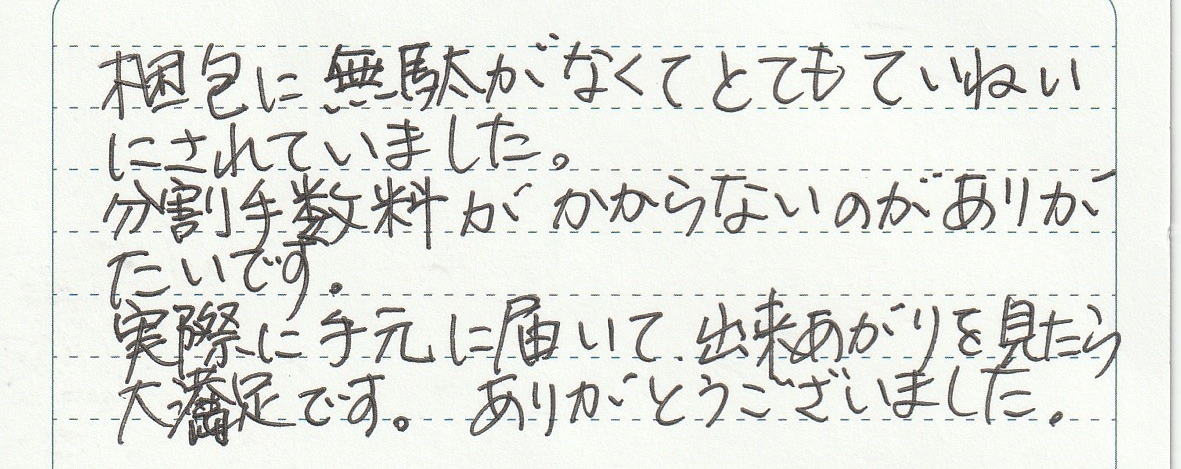 梱包に無駄がなくてとてもていねい
にされていました。
分割手数料がかからないのがありが
たいです。
実際に手元に届いて、出来あがりを見たら
大満足です。ありがとうございました。